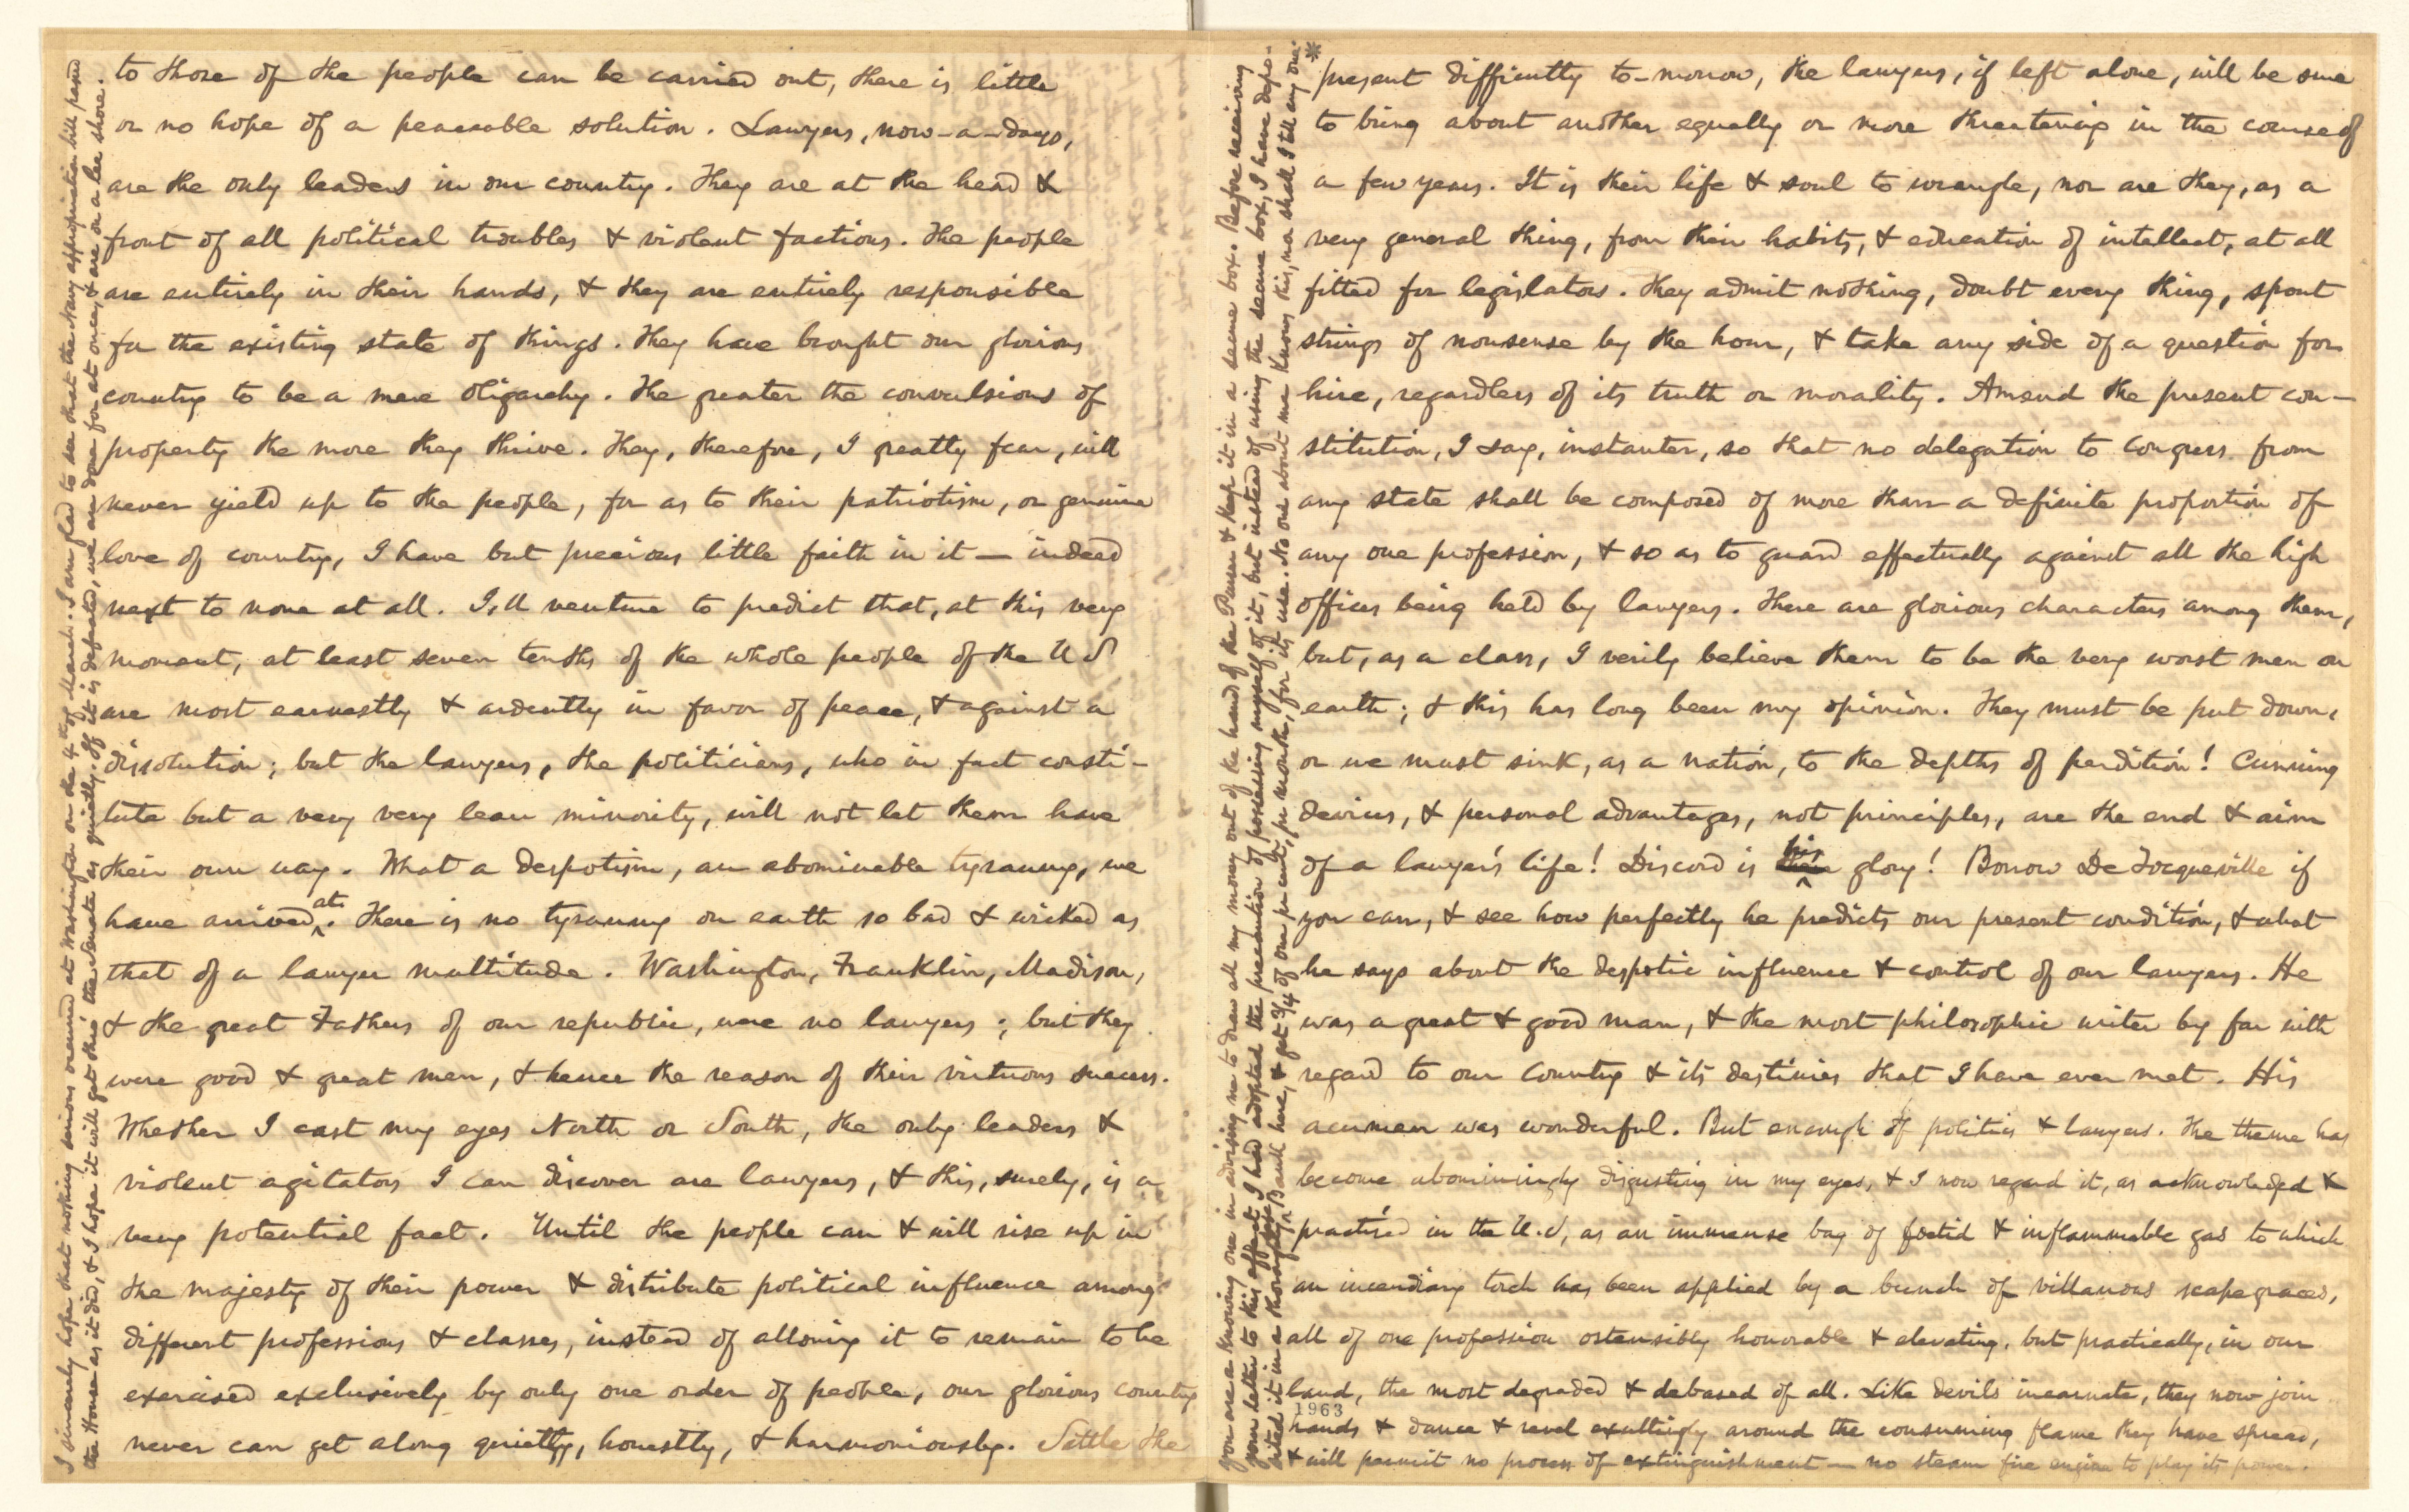 to those of the people can be carried out, there is little
or no hope of a peaceable solution. Lawyers, now-a-days,
are the only leaders in our country. They are at the head &
front of all political troubles & violent factions. The people
are entirely in their hands, & they are entirely responsible
for the existing state of things. They have brought our glorious
country to be a mere oligarchy. The greater the convulsions of
property the more they thrive. They, therefore, I greatly fear, will
never yield up to the people, for as to their patriotism, or genuine
love of country, I have but precious little faith in it — indeed
next to none at all. I'll venture to predict that, at this very
moment, at least seven tenths of the whole people of the U S
are most earnestly & ardently in favor of peace, & against a
dissolution; but the lawyers, the politicians, who in fact consti-
tute but a very very lean minority, will not let them have
their own way. What a despotism, an abominable tyranny, we
have arrived at. There is no tyranny on earth so bad & wicked as
that of a lawyer multitude. Washington, Franklin, Madison,
& the great Fathers of our republic, were no lawyers; but they
were good & great men, & hence the reason of their virtuous success.
Whether I cast my eyes North or South, the only leaders &
violent agitators I can discover are lawyers, & this, surely, is a
very potential fact. Until the people can & will rise up in
the majesty of their power & distribute political influence among
different professions & classes, instead of allowing it to remain to be
exercised exclusively by only one order of people, our glorious country
never can get along quietly, honestly, & harmoniously. Settle the
I sincerely hope that nothing serious occurred at Washington on the 4th of March. I am glad to see that the Navy appropriation bill passed
the House as it did, & I hope it will get thro' the Senate as quietly. If it is defeated, we are done for at once, & are on a lee shore.
* present difficulty to-morrow, the lawyers, if left alone, will be sure
to bring about another equally or more threatening in the course of
a few years. It is their life & soul to wrangle, nor are they, as a
very general thing, from their habits, & education of intellect, at all
fitted for legislators. They admit nothing, doubt every thing, spout
strings of nonsense by the hour, & take any side of a question for
hire, regardless of its truth or morality. Amend the present con-
stitution, I say, instanter, so that no delegation to Congress from
any state shall be composed of more than a definite proportion of
any one profession, & so as to guard effectually against all the high
offices being held by lawyers. There are glorious characters among them,
but, as a class, I verily believe them to be the very worst men on
earth; & this has long been my opinion. They must be put down,
or we must sink, as a nation, to the depths of perdition! Cunning
devices, & personal advantages, not principles, are the end & aim
of a lawyer's life! Discord is his glory! Borrow De Tocqueville if
you can, & see how perfectly he predicts our present condition, & what
he says about the despotic influence & control of our lawyers. He
was a great & good man, & the most philosophic writer by far with
regard to our Country & its destinies that I have ever met. His
acumen was wonderful. But enough of politics & lawyers. The theme has
become abominingly disgusting in my eyes, & I now regard it, as acknowledged &
practised in the U.S, as an immense bag of foetid & inflammable gas to which
an incendiary torch has been applied by a bunch of villanous scapegraces,
all of one profession ostensibly honorable & elevating, but practically, in our
land, the most degraded & debased of all. Like devils incarnate, they now join
1963
hands & dance & revel exultingly around the consuming flame they have spread,
& will permit no process of extinguishment — no steam fire engine to play its power.
you are a knowing one in advising me to draw all my money out of the hands of the Purser & keep it in a secure box. Before receiving
your letter to this effect I had adopted the precaution of possessing myself of it, but instead of using the secure box, I have depo-
sited it in a thoroughly safe Bank here, & get 3/4 of one per cent, per month, for its use. No one about me knows this, nor shall I tell any one.